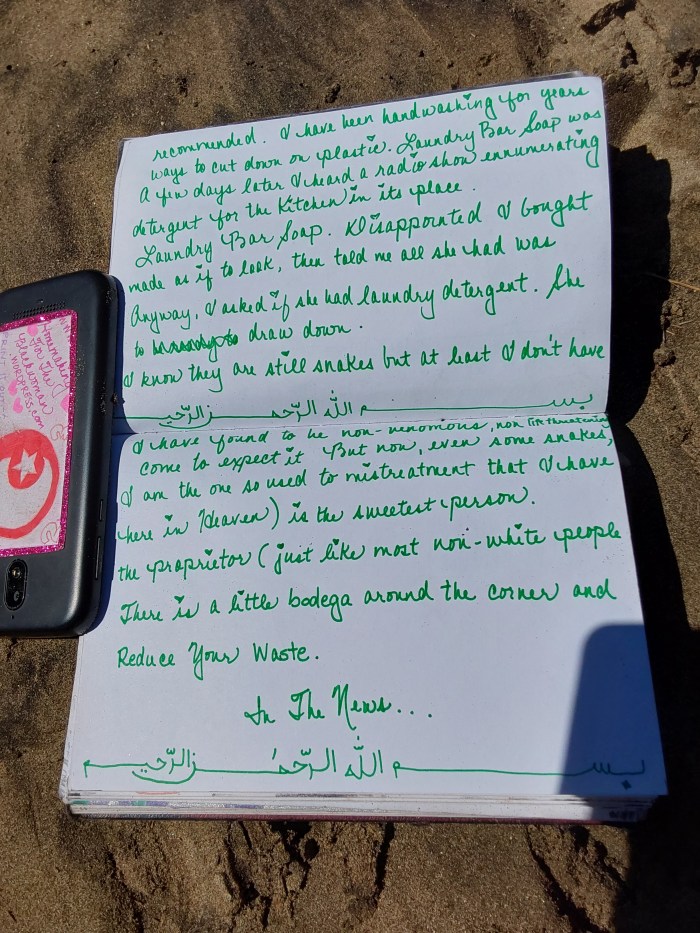 recommended. I have been handwashing for years
ways to cut down on plastic. Laundry Bar Soap was
A few days later I heard a radio show ennumerating
detergent for the kitchen in its place.
Laundry Bar Soap. Disappointed I bought
made as if to look, then told me all she had was
Anyway, I asked if she had laundry detergent. She
to draw down.
I know they are still snakes but at least I don't have
بسم الله الرّحمٰن الرّحيم
I have found to be non-venomous, non life threatening
come to expect it But now, even some snakes,
I am the one so used to mistreatment that I have
here in Heaven) is the sweetest person.
the proprietor (just like most non-white people
There is a little bodega around the corner and
Reduce Your Waste.
In The News...
بسم الله الرّحمٰن الرّحيم
Homemaking
For The
Blackwoman
WORDPRESS.com